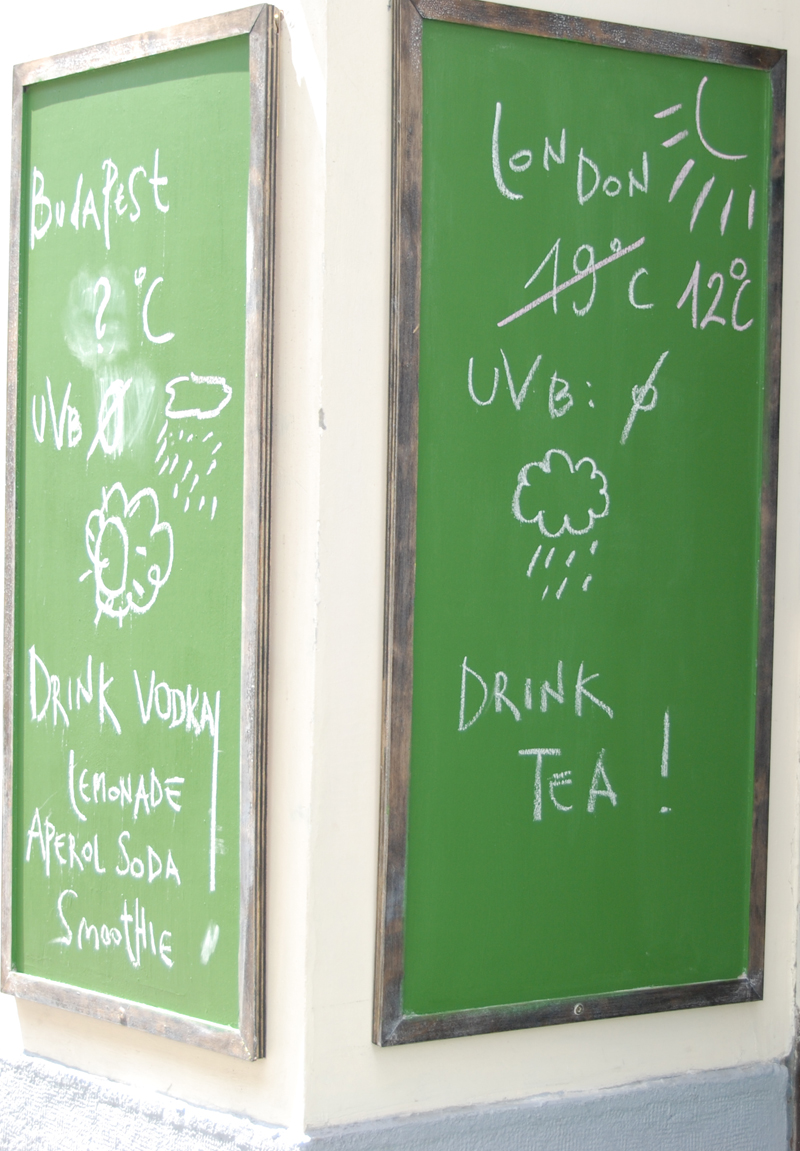 BUdAPESt
? °C
UVB Ø
DRINK VODKA
LEMONADE
APEROL SODA
SmootHIE !
LONDON
19°C 12°C
UVB: Ø
DRINK
TEA !